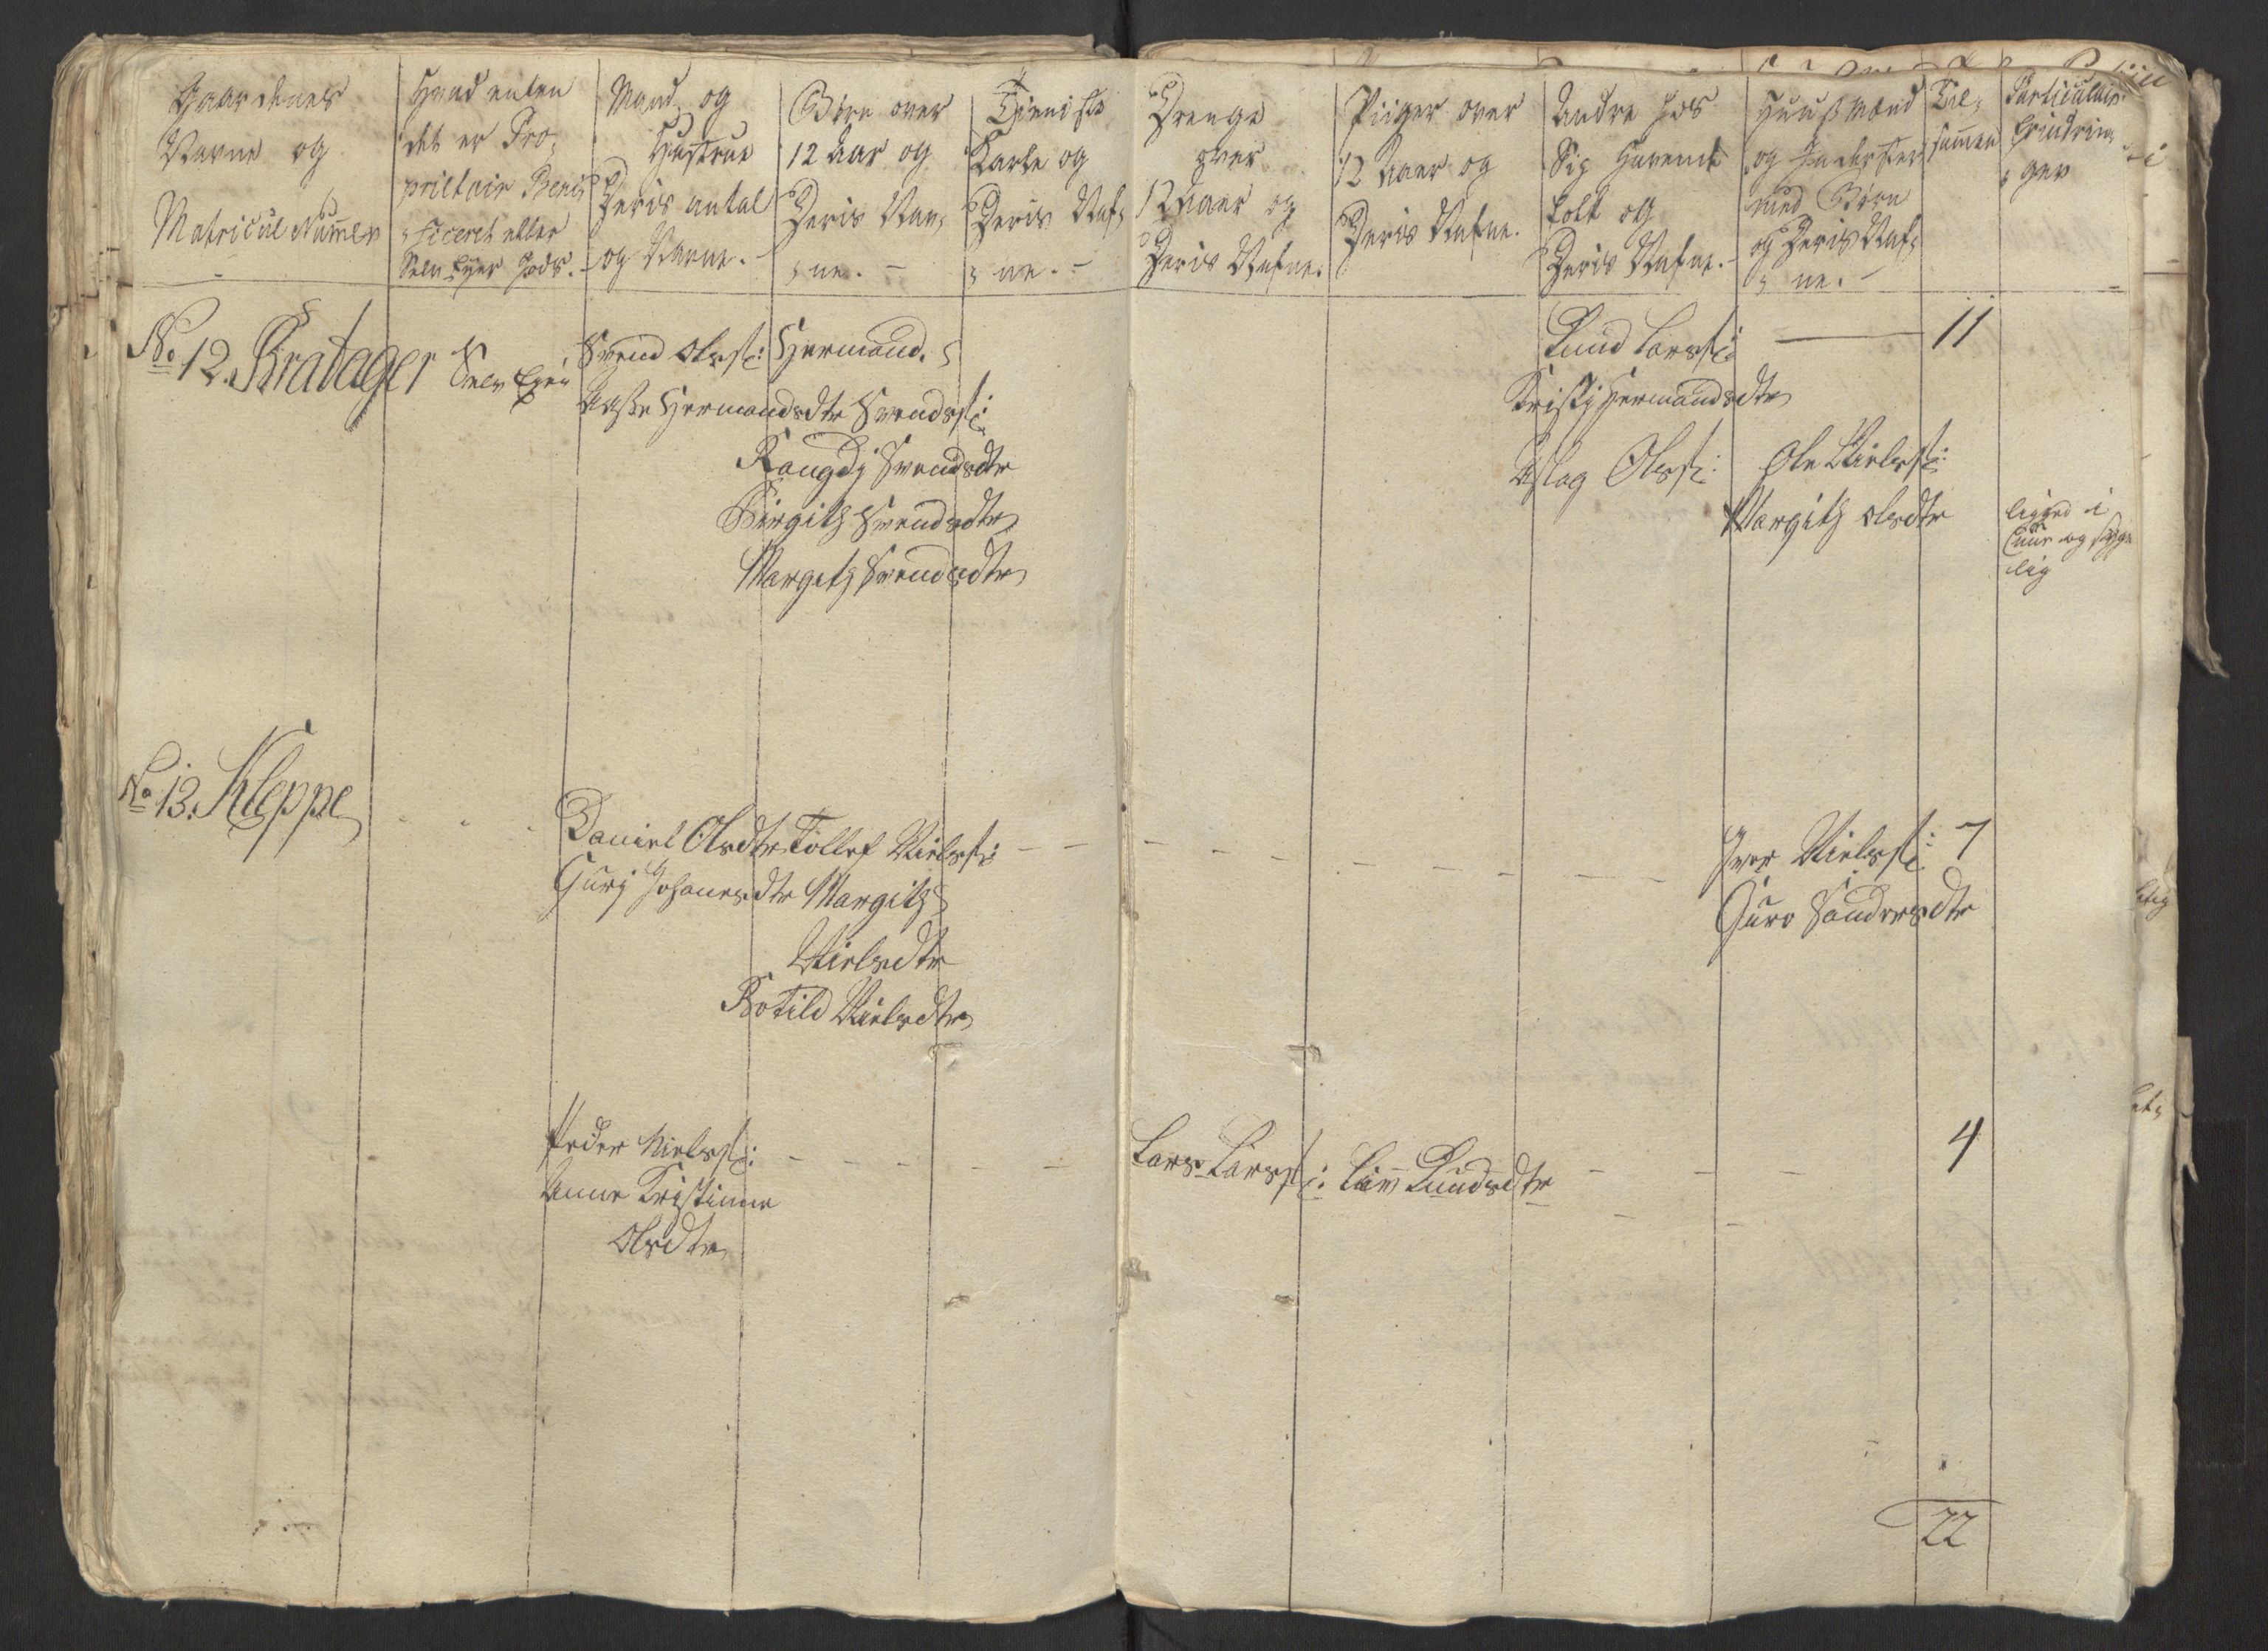 Gaardenes
Navne og
Matricul Numer
Hvad enten
det er Pro,
prietair Beni,
ficeret eller
Selv Eyer Gods.
Mand og
Hustrue
Deris antal
og Navne.
Børn over
12 Aar og
Deris Nav,
ne.
Tieniste
Karle og
Deris Naf,
ne.
Drenge
over
12 Aar og
Deris Nafne.
Piiger over
12 Aaer og
Deris Nafne.
Andre hos
Sig havende
Folk og
Deris Nafne.
Huusmænd
og Inderster
med Børn
og Deris Naf,
ne.
Til,
sammen
Particulair
Erindrin,
ger
No 12. Bratager
Selv Eyer
Svend Olss:
Aasse Hermandsdtr
Hermand
Svendss:
Rangdj Svendsdtr
Birgith Svendsdtr
Margith Svendsdtr
Knud Larss:
Kristj Hermandsdtr
Aslag Olss:
Ole Nielss:
Margith Olsdtr
11
ligged i
og
lig
No 13. Kleppe
Daniel Olsdtr
Gurj Johanesdtr
Tollef Nielss:
Margith
Nielsdtr
Botild Nielsdtr
Iver Nielss:
Guro Sandersdtr
7
Peder Nielss:
Anne Kristinne
Olsdtr
Lars Larss:
Knudsdtr
4
22